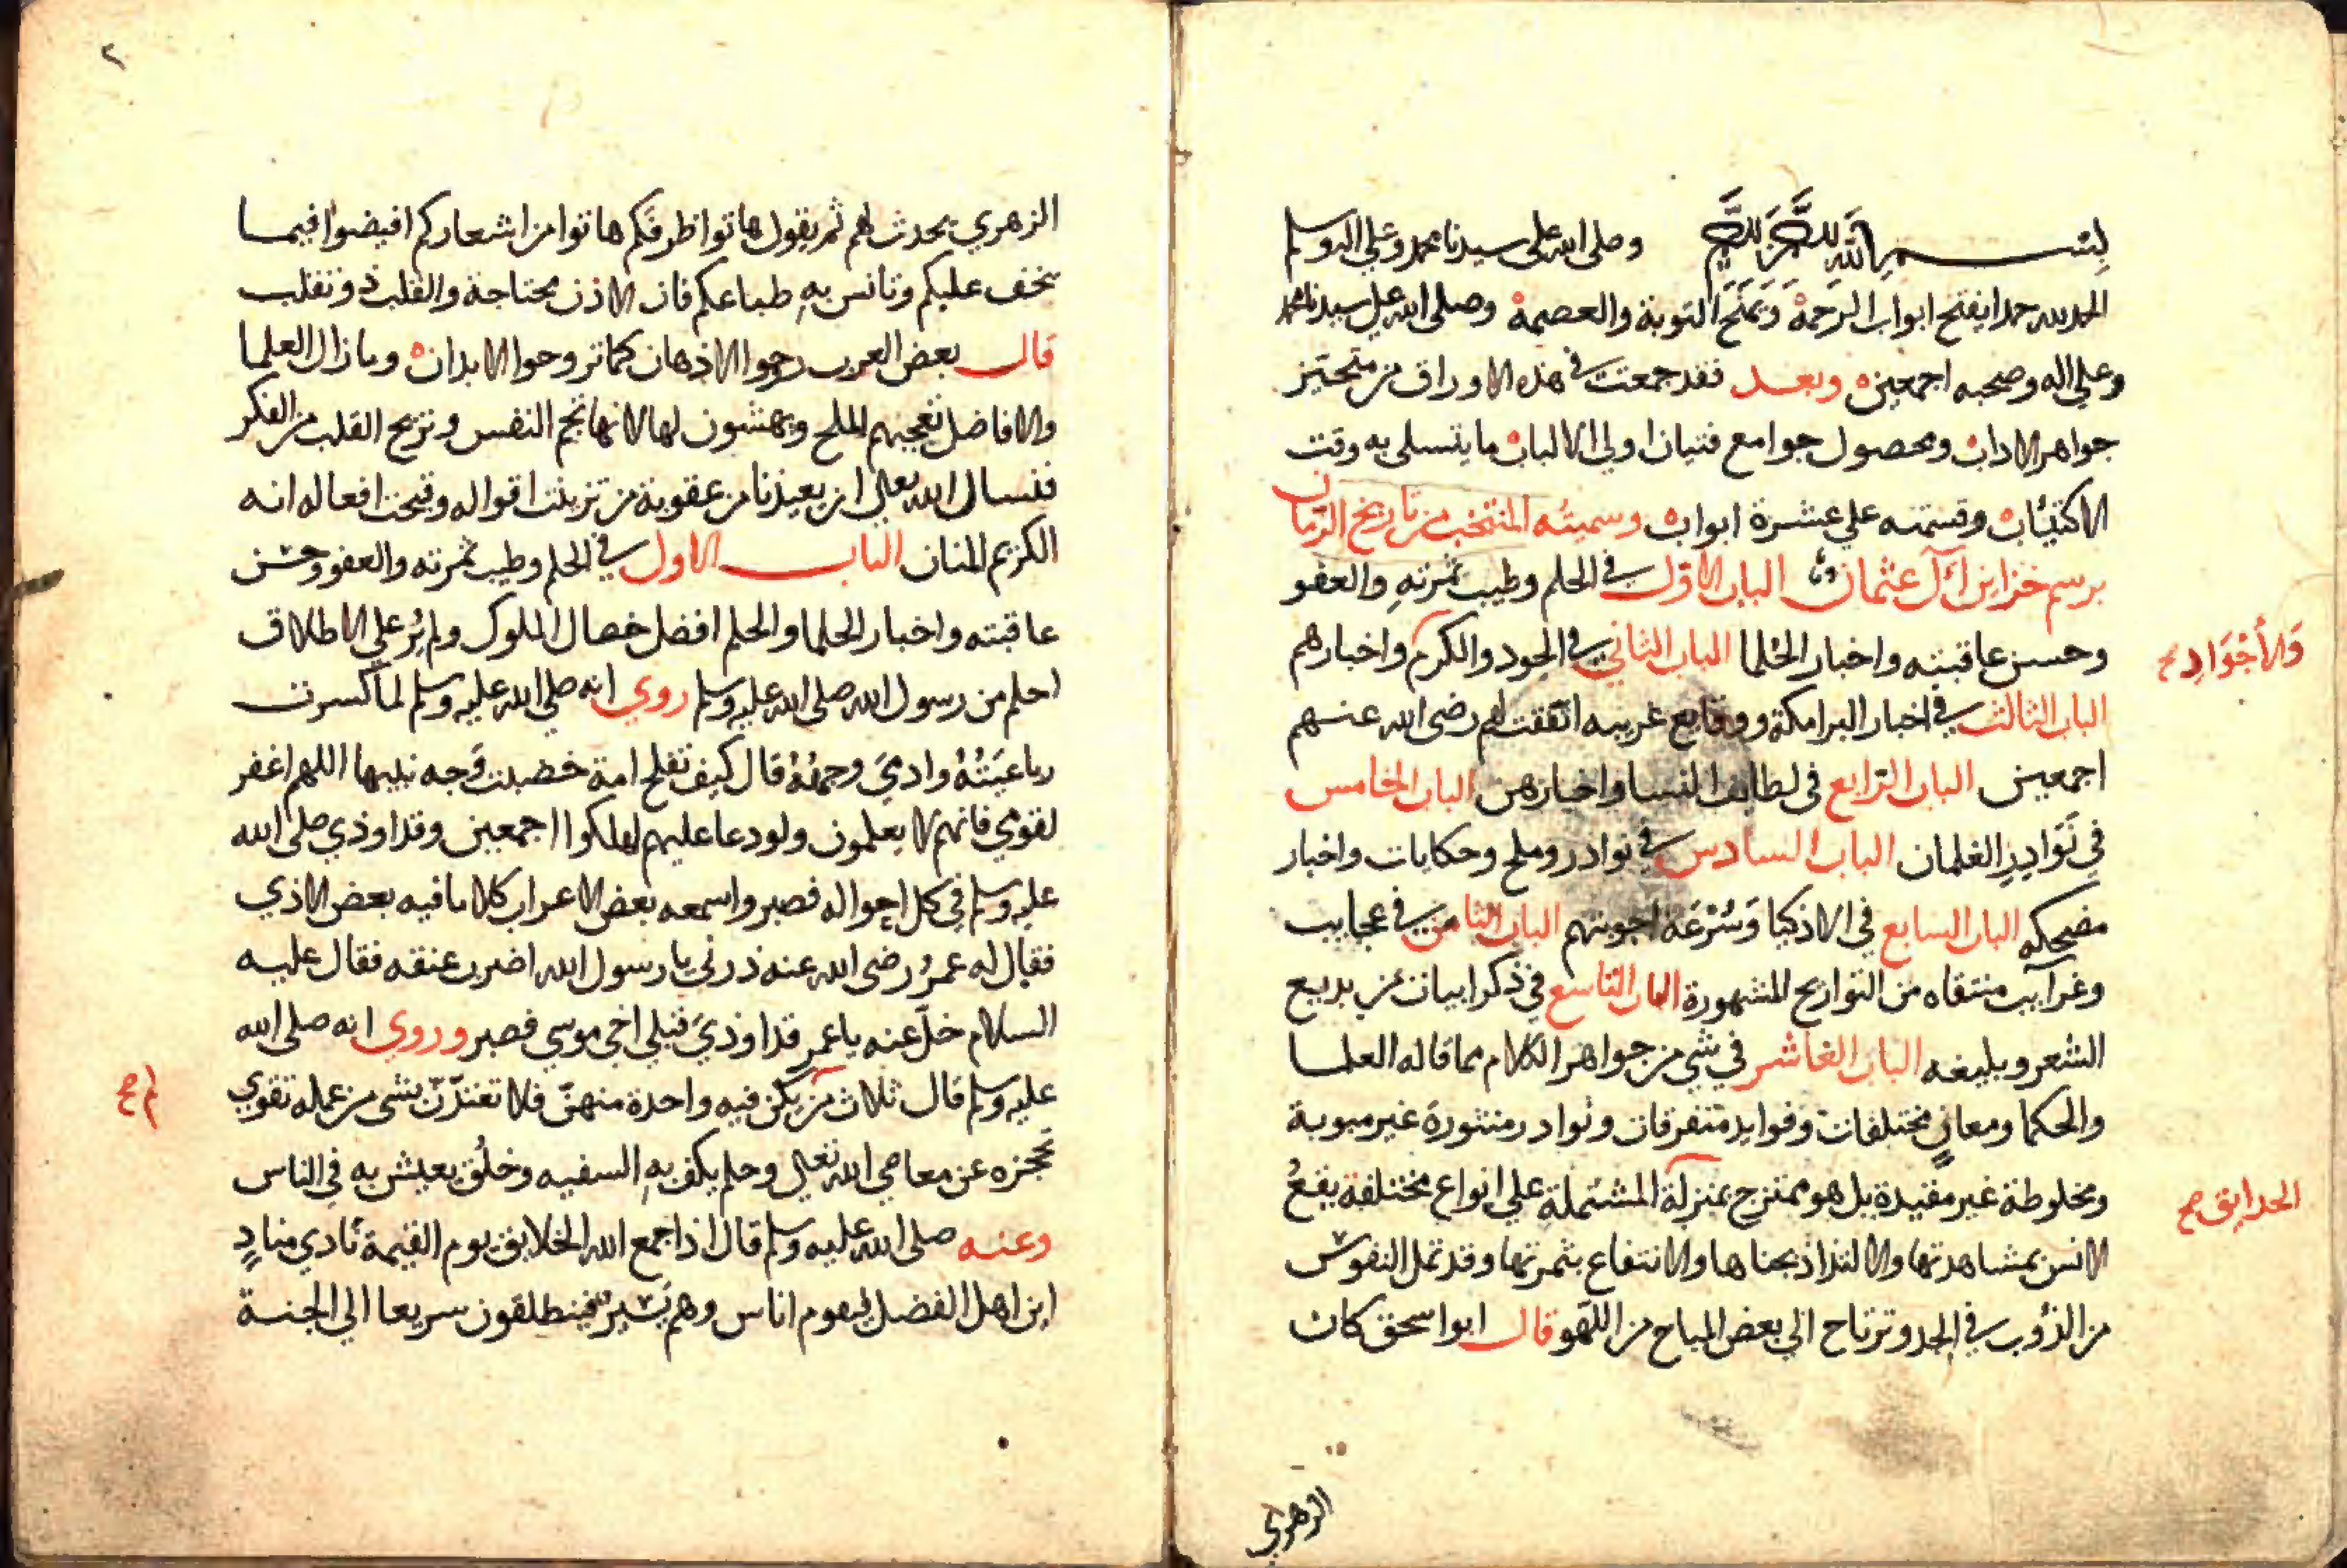 بسم الله الرحمن الرحيم وصلى الله على سيدنا محمد وعلى اله وسلم
الحمد لله حمدا يفتح ابواب الرحمة ويمنح التوبة والعصمة وصلى الله على سيدنا محمد
وعلي اله وصحبه اجمعين وبعد فقد جمعت في هذه الاوراق من
جواهر الاداب ومحصول جوامع فتيان اولي الالباب ما يتسلى به وقت
الاكتئاب وقسمته علي عشرة ابواب وسميته المنتخب من تاريخ الزمان
برسم خزاين آل عثمان الباب الاول في الحلم وطيب ثمرته والعفو
وحسن عاقبته واخبار الحلما الباب الثاني في الجود والكرم واخبارهم
والأجواد صح
الباب الثالث في اخبار البرامكة ووقايع غريبه اتفقت لهم رضى الله عنهم
اجمعين الباب الرابع في لطايف النسا واخبارهن الباب الخامس
في نوادر الغلمان الباب السادس في نوادر وملح وحكايات واخبار
مضحكه الباب السابع في الاذكيا وسرعة اجوبتهم الباب الثامن في عجايب
وغرايب منتقاه من التواريخ المشهورة الباب التاسع في ذكر ابيات من بديع
الشعر وبليغه الباب العاشر في شي من جواهر الكلام مما قاله العلما
والحكما ومعانٍ مختلفات وفوايد متفرقات ونوادر منثورة غير مبوبة
ومخلوطة غير مقيدة بل هو ممتزج بمنزلة المشتملة علي انواع مختلفة يقع
الحدايق صح
الانس بمشاهدتها والالتذاذ بجناها والانتفاع بثمرتها وقد تمل النفوس
من الدؤب في الجد وترتاح الي بعض المباح من اللهو قال ابو اسحق كان
الزهري
٢
الزهري يحدث لهم ثم يقول هاتوا ظرفكم هاتوا من اشعاركم افيضوا فيما
يخف عليكم وتانس به طباعكم فان الاذن مجتاجة والقلب ذو تقلب
قال بعض العرب روحوا الاذهان كما تروحوا الابدان وما زال العلما
والافاضل تعجبهم الملح ويهشون لها لانها تجم النفس وتريح القلب من الفكر
فنسال الله تعالى ان يعيذنا من عقوبة من تزينت اقواله وقبحت افعاله انه
الكريم المنان الباب الاول في الحلم وطيب ثمرته والعفو وحسن
عاقبته واخبار الحلما والحلم افضل خصال الملوك ولم يُر علي الاطلاق
احلم من رسول الله صلى الله عليه وسلم روي انه صلى الله عليه وسلم لما كسرت
رباعيته وادمي وجهه قال كيف تفلح امة خضبت وجه نبيها اللهم اغفر
لقومي فانهم لا يعلمون ولو دعا عليهم لهلكوا اجمعين وقد اوذي صلى الله
عليه وسلم في كل احواله فصبر واسمعه بعض الاعراب كلاما فيه بعض الاذي
فقال له عمر رضى الله عنه ذرني يا رسول الله اضرب عنقه فقال عليه
السلام خلّ عنه يا عمر قد اوذي قبلي اخي موسي فصبر وروي انه صلى الله
عليه وسلم قال ثلاث من يكن فيه واحدة منهنّ فلا تعتدّنّ بشي من عمله تقوي
لم صح
تحجزه عن معاصي الله تعالى وحلم يكف به السفيه وخلُق يعيش به في الناس
وعنه صلى الله عليه وسلم قال اذا جمع الله الخلايق يوم القيمة نادي منادٍ
اين اهل الفضل ليقوم اناس وهم يسير فينطلقون سريعا الي الجنة